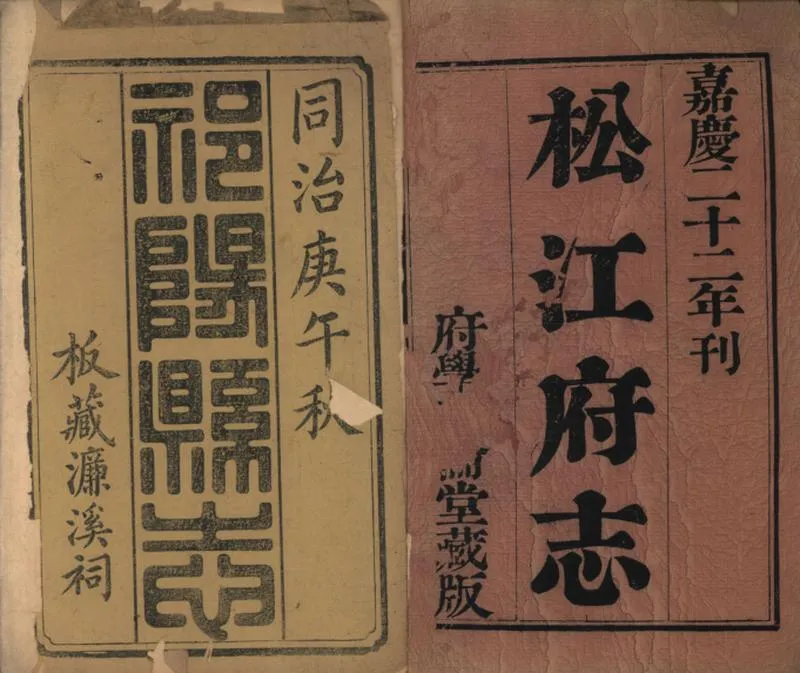 嘉慶二十二年刊
松江府志
府學
堂藏版
同治庚午秋
祁陽縣志
板藏濂溪祠